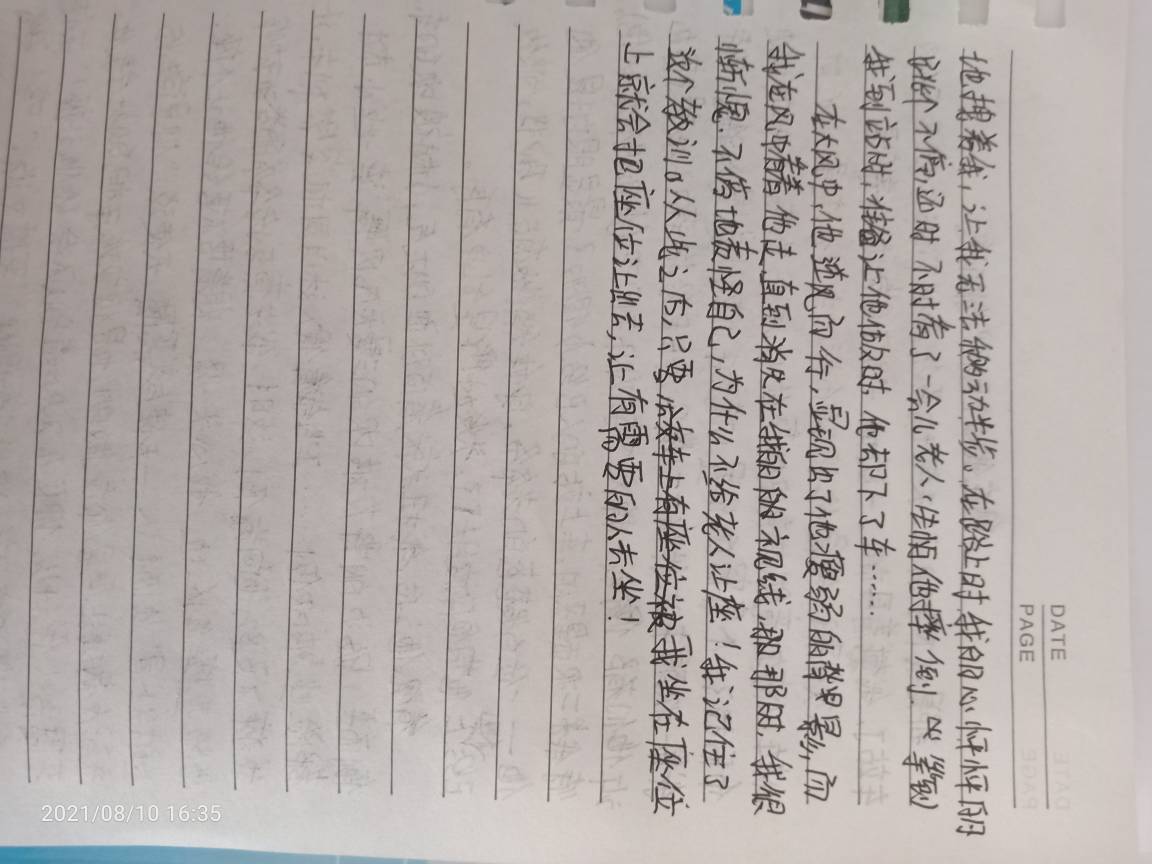 DATE
PAGE
他拽着我，让我无法挪动半步。在路上时我的心怦怦的
跳个不停还时不时看了一会儿老人，生怕他摔倒。等到
我到站时，准备让他做时，他却下了车……
在大风中，他迎风而行，显现出了他瘦弱的背影，而
我在风中看着他走，直到消失在我的视线，那时，我很
惭愧，不停地责怪自己，为什么不给老人让座！我记住了
这个教训。从此之后，只要我坐在座位
上就会把座位让出去，让有需要的人去坐！
2021/08/10 16:35